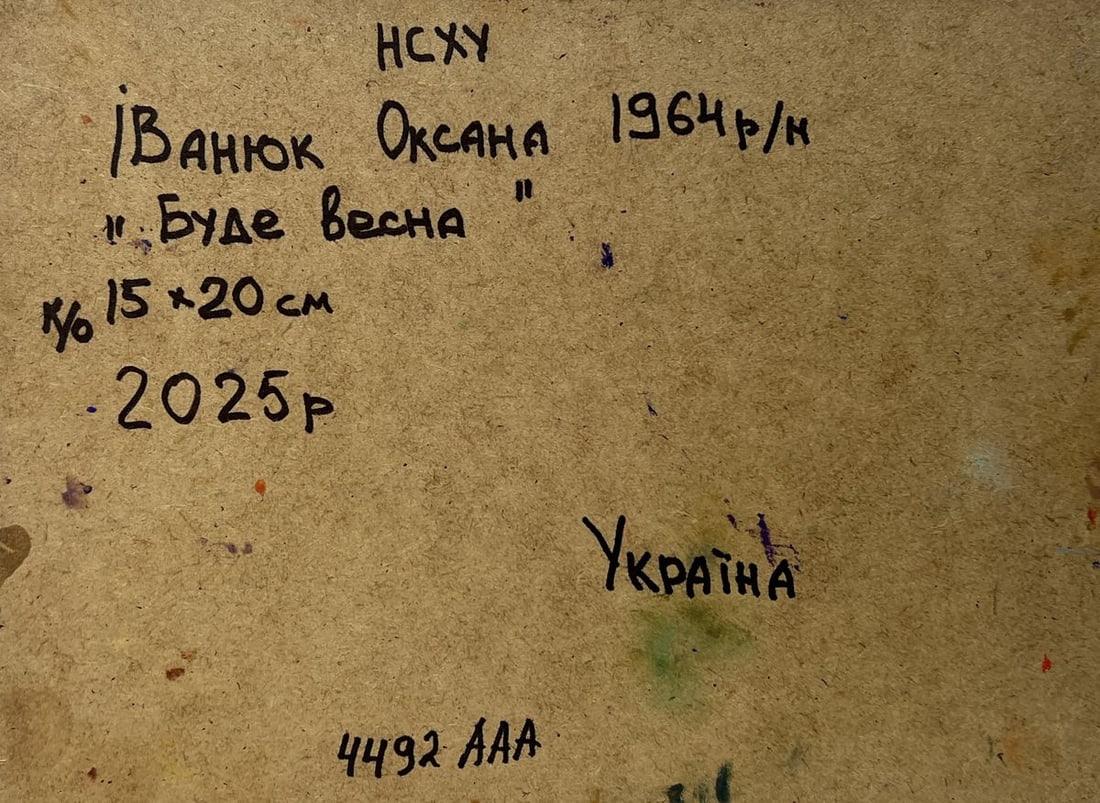 НСХУ
Іванюк Оксана 1964р/н
"Буде весна"
к/о 15 x 20 см
2025р
Україна
4492 ААА